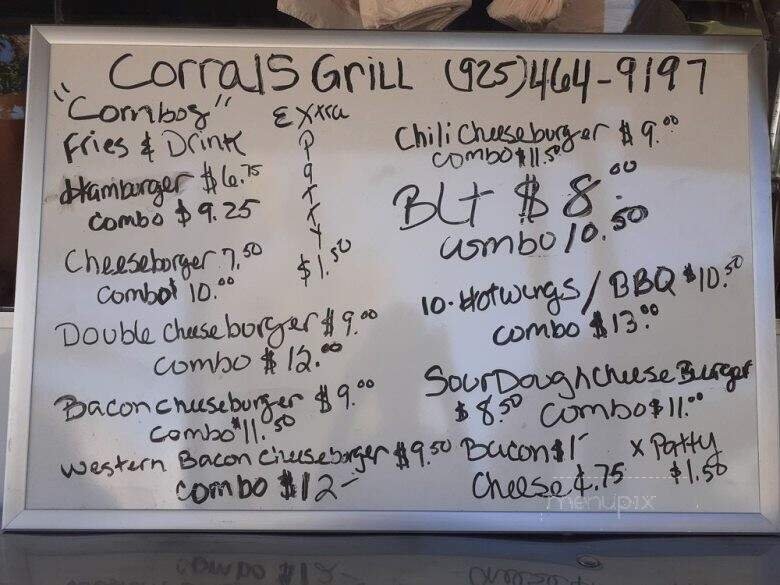 Corrals Grill (925)464-9197
"Combos"
Fries & Drink
Hamburger $6.75
combo $9.25
Cheeseborger 7.50
Combo 10.00
Double cheeseborger $9.00
combo $12.00
Bacon cheeseburger $9.00
Combo $11.50
Western Bacon Cheeseborger $9.50
combo $12-
Extra
P
a
t
t
y
$1.50
Chili Cheeseburger $9.00
combo $11.50
BLT $8.00
combo 10.50
10. Hotwings/BBQ $10.50
combo $13.00
SourDough Cheese Burger
$8.50 Combo $11.00
Bacon $1- x Patty
Cheese ¢.75 $1.50
menupix